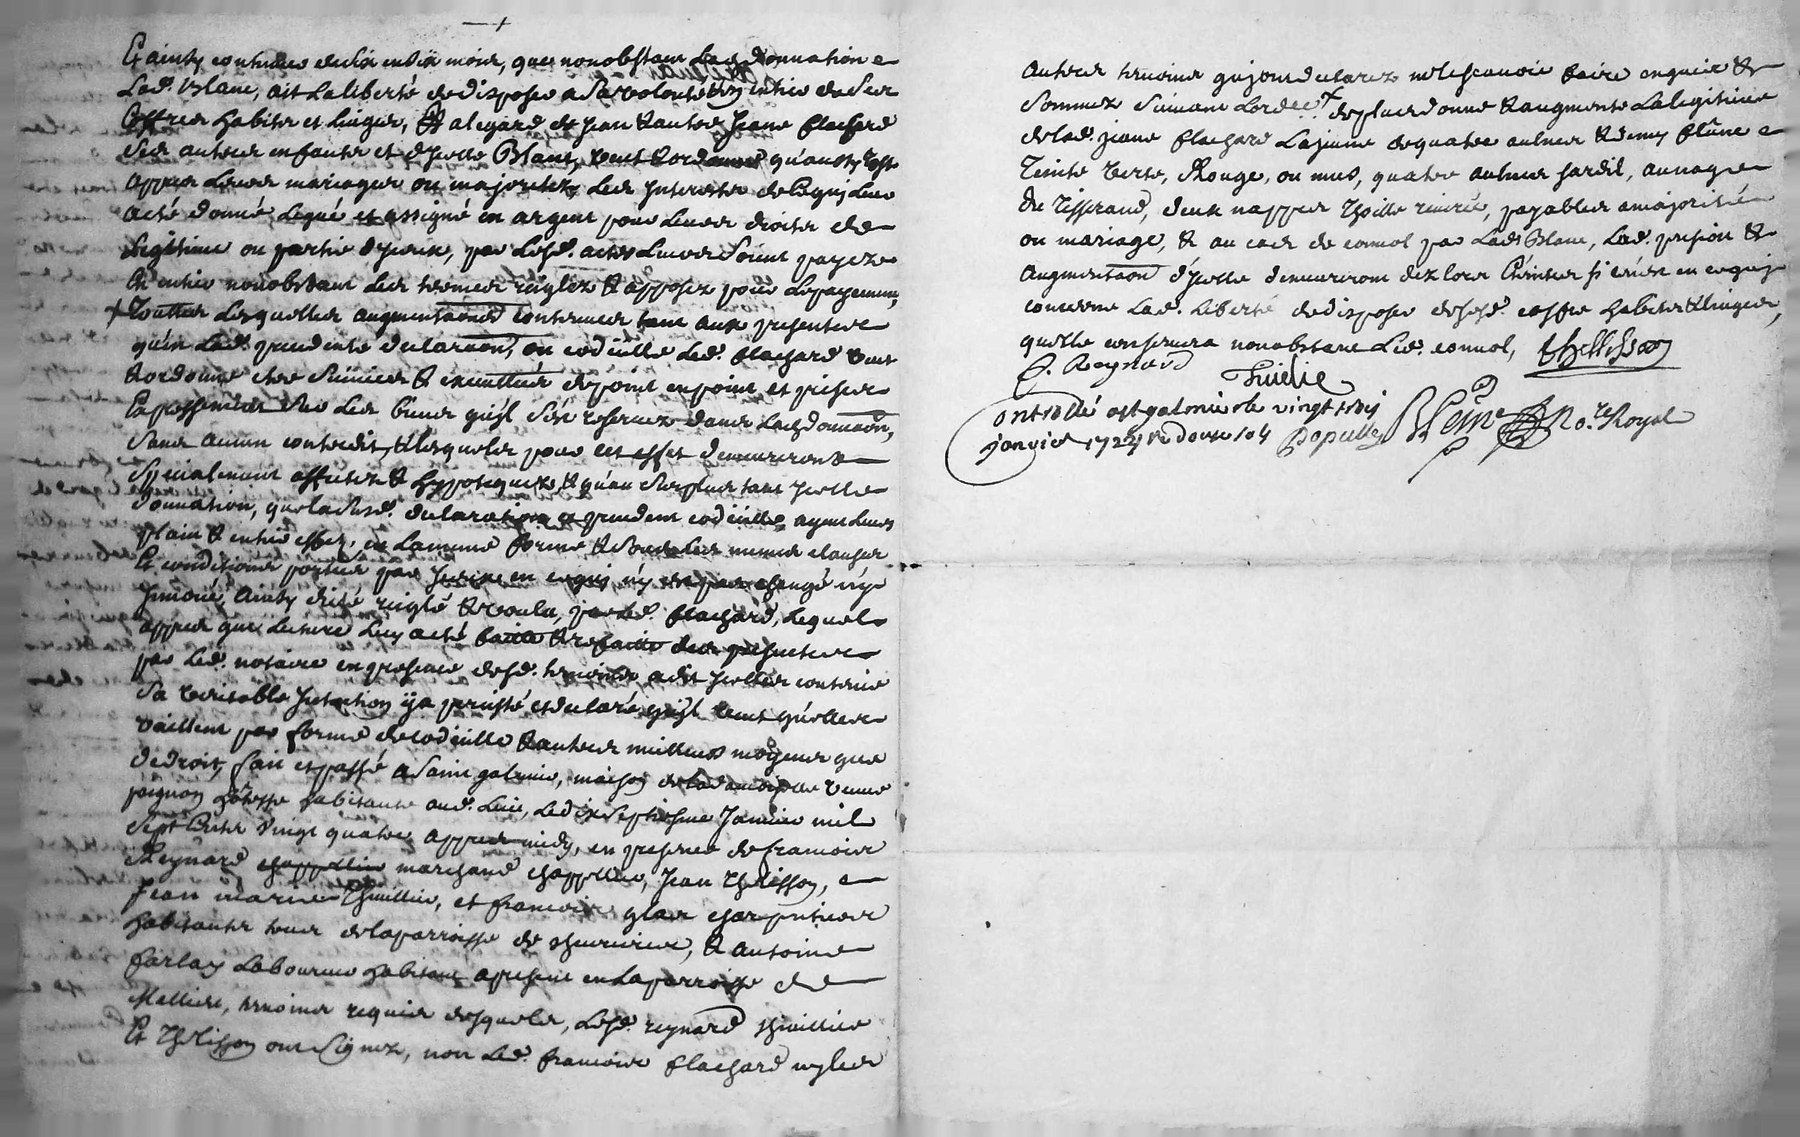 Et ainsy continuer de six en six mois, que nonobstant lad. donnation
Lad. Blanc, ait la liberté de disposer a sa volonté de ses
Coffres habits et linges, & a legard de Jean & autre Jeane flachard
ses autres enfants et d'ycelle Blanc, veut & ordonne qu'au
appres leurs mariages ou majoritez, les Interests de ce quy leur
a esté donné, legué et assigné en argent pour leurs droits de
Legitime ou partie d'yceux, par lesd. actes leurs soint payez
En entier nonobstant les termes reiglez & apposez pour le payement,
+ Touttes lesquelles augmentaons contenues tant aux presentes
qu'en lad. precedente declaraon, ou codicille led. flachard veut
& ordonne estre suivies & executtées de point en point et prises
sur les biens qu'jl s'est reservez dans lad. donnaon,
Sans aucun contredit, & lesquels pour cet effet demeureront
specialement affectez & hyppotequez, & qu'au surplus tant ycelle
Donnation, que lasusd. declaration et precedent codicille, ayent leurs
plain & entier effet, en la mesme forme & sous les mesmes clauses
Et conditions portées par yceux en ce quy n'y est pas changé n'y
jnnové, Ainsy dicté reiglé & voulu, par led. flachard, lequel
appres que lecture luy a esté faitte & refaitte des presentes
par led. notaire en presence desd. temoins a dit ycelles contenir
Sa veritable Jntention y a persisté et declaré qu'jl veut qu'elles
vaillent par forme de codicille & autres meilleurs moyens que
de droit, fait et passé a Saint galmier, maison de la damoiselle veuve
poignon hôtesse habitante aud. lieu, le dix septiesme Janvier mil
sept Cents vingt quatre appres midy, en presence de francois
Reynard chappellier marchand chappellier, Jean Thelisson,
Jean marie Thuillier, et francois glas charpentiers
habitants tous de la parroisse de chevrieres, & Antoine
farlay Laboureur habitant a present en la parroisse de
Mellieu, temoins requis desquels, lesd. reynard thuillier
Et Thelisson ont signez, non led. francois flachard ny les
autres temoins qu'jont declarez ne le scavoir faire enquis &
Sommez Suivant l'orde. + de plus donne & augmente la legitime
de lad. jeane flachard la jeune de quatre aulnes & demy
Teinte verte, Rouge, ou mus, quatre aulnes sardil, au
du Tisserand, deux nappes thoille, payables a majorité
ou mariage, & au cas de convol par lad. Blanc, lad. pension &
augmentaon d'ycelle demeureront dez lors Eteintes si ce n'est en ce quj
concerne lad. Liberté de disposer desd. coffre habits & linges,
quelle conservera nonobstant led. convol, Thellisson
C. Reynard Thuelie
Controllé a st galmier le vingt trois
janvier 1724 Rd douze sols Royal